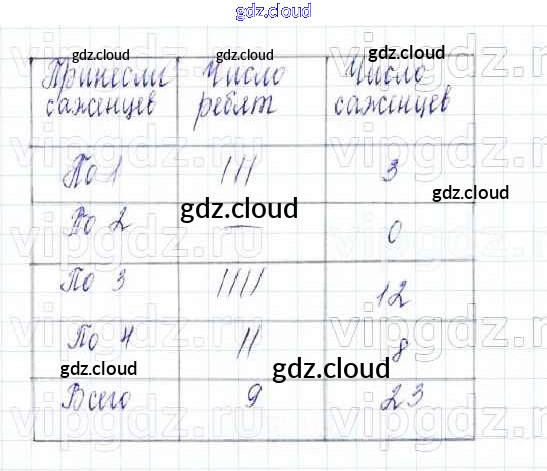 gdz.cloud
gdz.cloud gdz.cloud gdz.cloud
Принесли саженцев Число ребят Число саженцев
По 1 III 3
gdz.cloud
gdz.cloud
По 2 — 0
По 3 IIII 12
По 4 II 8
gdz.cloud gdz.cloud
Всего 9 23
vipgdz.ru